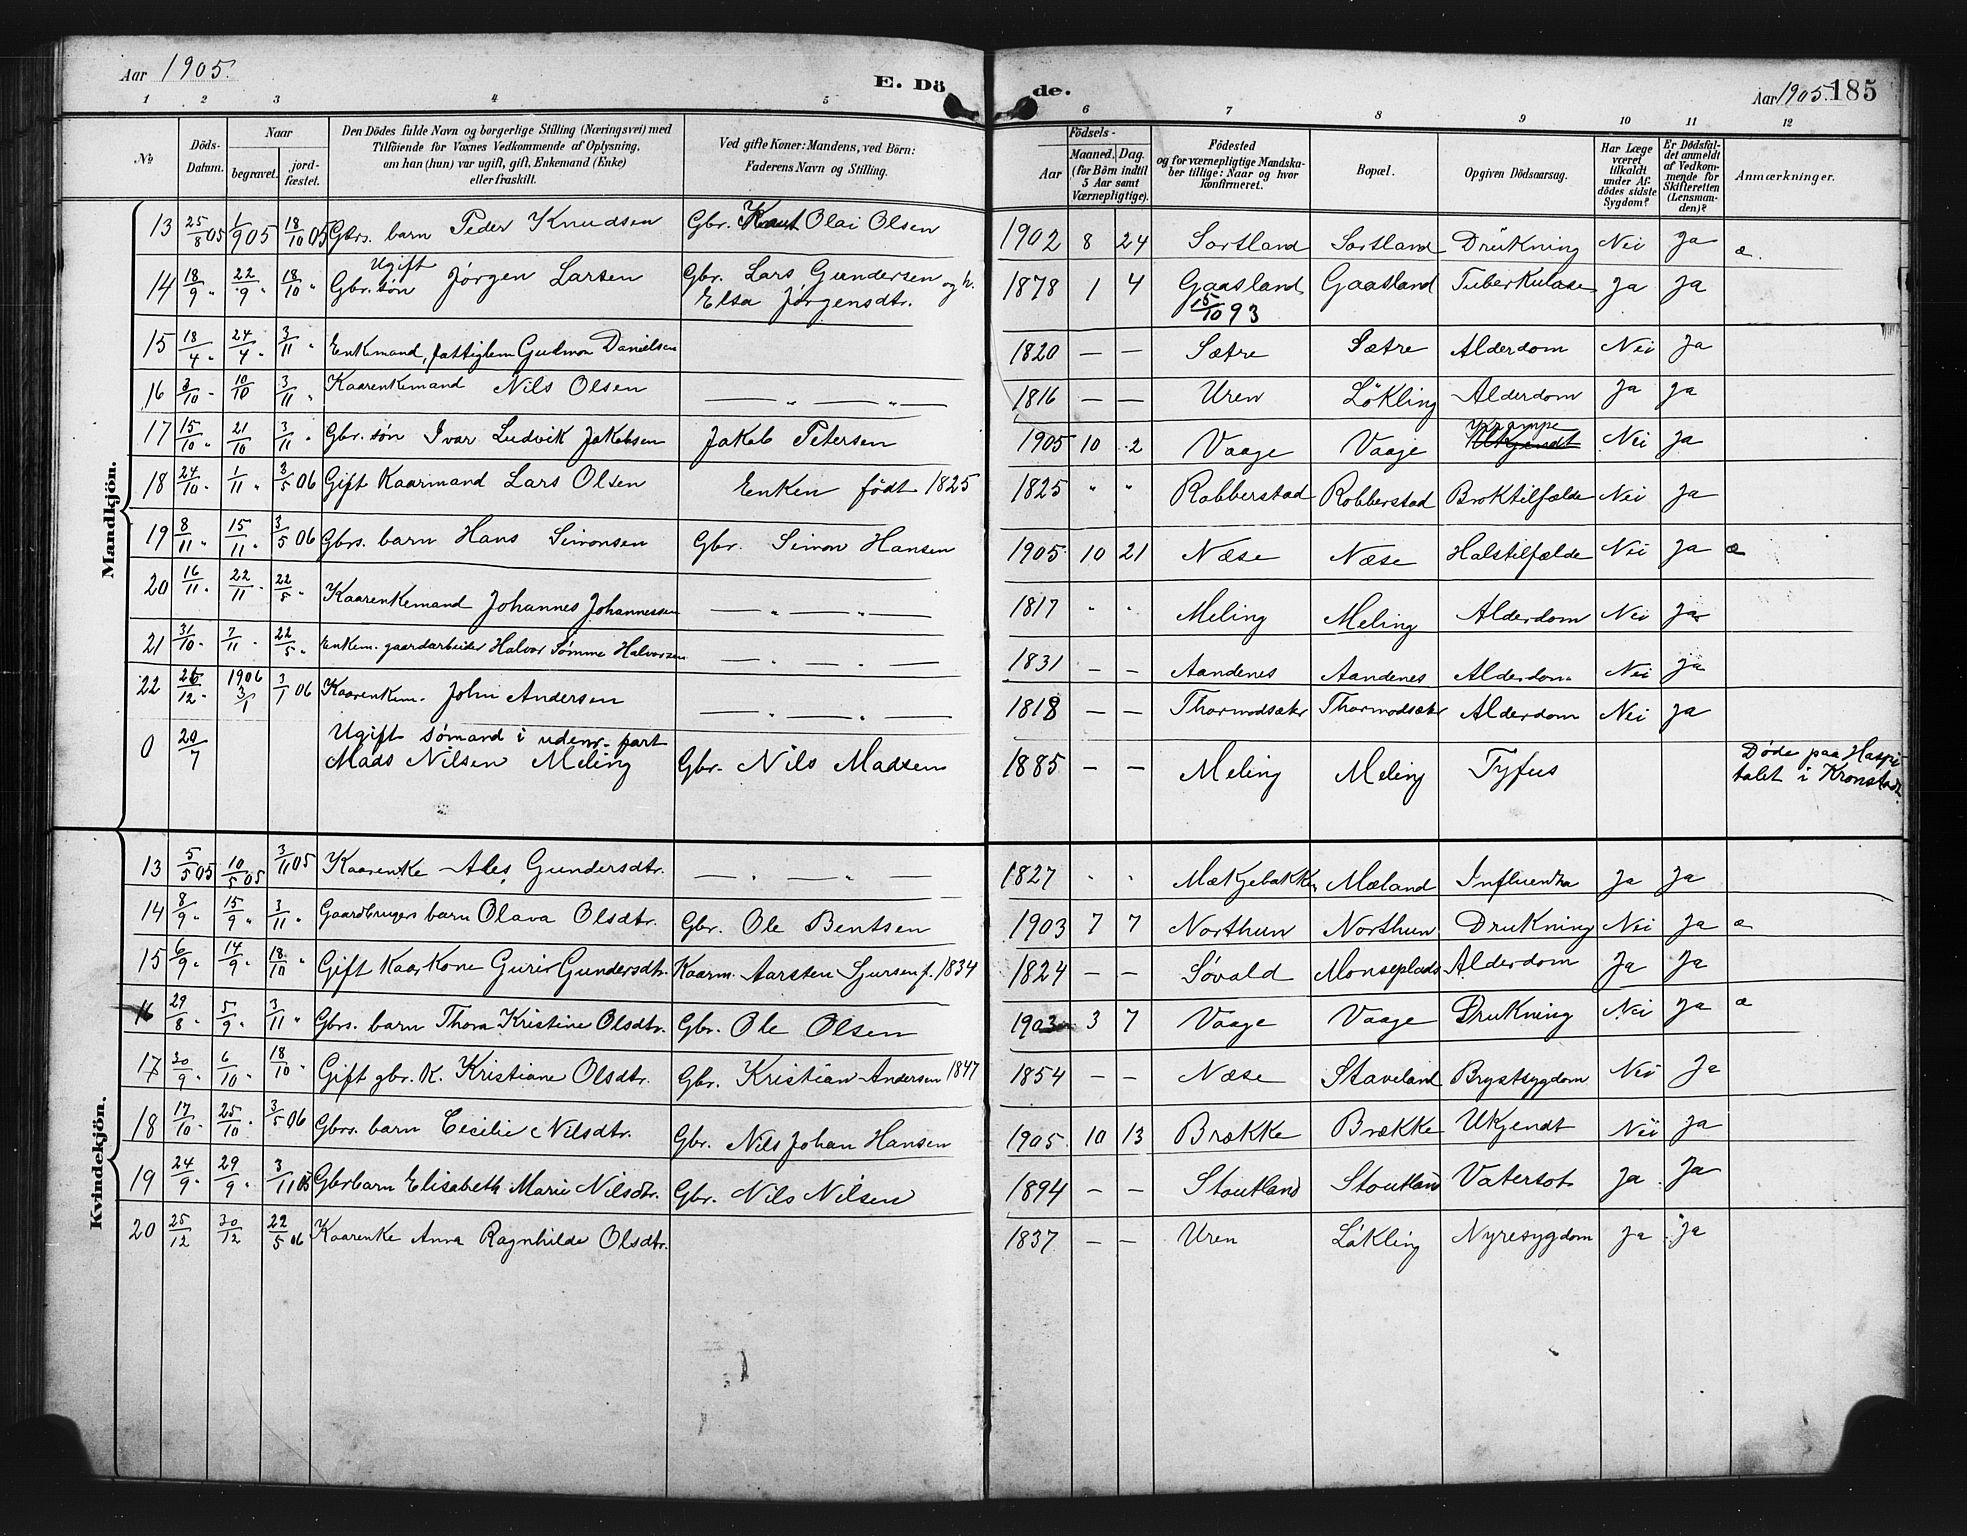 Aar 1905.
E. Dö
de.
Aar 1905. 185
1 2 3 4 5
6 7 8 9 10 11 12
No
Döds-Datum.
Naar
begravet.
jord-fæstet.
Den Dödes fulde Navn og borgerlige Stilling (Næringsvei) med
Tilföiende for Voxnes Vedkommende af Oplysning,
om han (hun) var ugift, gift, Enkemand (Enke)
eller fraskilt.
Ved gifte Koner: Mandens, ved Börn:
Faderens Navn og Stilling.
Födsels-
Aar
Maaned. Dag.
(for Börn indtil
5 Aar samt
Værnepligtige).
Födested
og for værnepligtige Mandska-
ber tillige: Naar og hvor
konfirmeret.
Bopæl.
Opgiven Dödsaarsag.
Har Læge
været
tilkaldt
under Af-
dödes sidste
Sygdom?
Er Dödsfal-
det anmeldt
af Vedkom-
mende for
Skifteretten
(Lensman-
den)?
Anmærkninger.
Mandkjön.
13 25/8 05 1/9 05 18/10 05 Gbrs. barn Peder Knudsen Gbr. Knut Olai Olsen 1902 8 24 Sortland Sortland Drukning Nei Ja æ.
14 18/9 " 22/9 " 18/10 " Ugift Gbr. søn Jørgen Larsen Gbr. Lars Gundersen og h. Elsa Jørgensdtr. 1878 1 4 Gaasland 15/10 93 Gaasland Tuberkulose Ja Ja
15 18/4 " 24/4 " 3/11 " Enkemand, fattiglem Gudmon Danielsen 1820 — — Sætre Sætre Alderdom Nei Ja
16 3/10 - 10/10 3/11 " Kaarenkemand Nils Olsen — " — " — 1816 — — Uren Løkling Alderdom Ja Ja
17 15/10 " 21/10 3/11 " Gbr. søn Ivar Ludvik Jakobsen Jakob Petersen 1905 10 2 Vaage Vaage Krampe Ukjendt Nei Ja
18 24/10 - 1/11 " 3/5 06 Gift Kaarmand Lars Olsen Enken født 1825 1825 " " Robberstad Robberstad Broktilfælde Nei Ja
19 8/11 " 15/11 " 3/5 06 Gbrs. barn Hans Simonsen Gbr. Simon Hansen 1905 10 21 Næse Næse Halstilfælde Nei Ja æ
20 16/11 " 22/11 - 22/5 " Kaarenkemand Johannes Johannessen — " — " — 1817 " " Meling Meling Alderdom Nei Ja
21 31/10 - 7/11 - 22/5 " Enkem. gaardarbeider Halvor Sømme Halvorsen — " — " — 1831 — — Aandenes Aandenes Alderdom Nei ja
22 26/12 - 1906 3/1 3/1 06 Kaarenkem. John Andersen — " — " — 1818 — — Thormodsæter Thormodsæter Alderdom Nei Ja
0 20/7 Ugift sømand i udenr. fart
Mads Nilsen Meling Gbr. Nils Madsen 1885 — — Meling Meling Tyfus Døde paa Hospi-
talet i Kronstadt.
Kvindekjön.
13 5/5 05 10/5 05 3/11 05 Kaarenke Ales Gundersdtr. — " — " — 1827 " " Mækjebakken Mæland Influentza Ja Ja
14 8/9 " 15/9 " 3/11 " Gaardbrugers barn Olava Olsdtr. Gbr. Ole Bentsen 1903 7 7 Northun Northun Drukning Nei Ja æ
15 6/9 " 14/9 " 18/10 " Gift Kaarkone Guri Gundersdtr. Kaarm. Aarsten Sjursen f. 1834 1824 — — Søvald Monseplads Alderdom Ja Ja
16 29/8 - 5/9 " 3/11 " Gbrs. barn Thora Kristine Olsdtr. Gbr. Ole Olsen 1903 3 7 Vaage Vaage Drukning Nei Ja æ
17 30/9 " 6/10 " 18/10 - Gift gbr. k. Kristiane Olsdtr. Gbr. Kristian Andersen 1847 1854 — — Næse Staveland Brystsygdom Nei Ja
18 17/10 - 25/10 - 3/5 06 Gbrs. barn Cecilie Nilsdtr. Gbr. Nils Johan Hansen 1905 10 13 Brække Brække Ukjendt Nei Ja
19 24/9 " 29/9 " 3/11 05 Gbr barn Elisabeth Marie Nilsdtr. Gbr. Nils Nilsen 1894 — — Stoutland Stoutland Vatersot Ja Ja
20 25/12 30/12 22/5 06 Kaarenke Anna Ragnhilde Olsdtr. 1837 — — Uren Løkling Nyresygdom Ja Ja